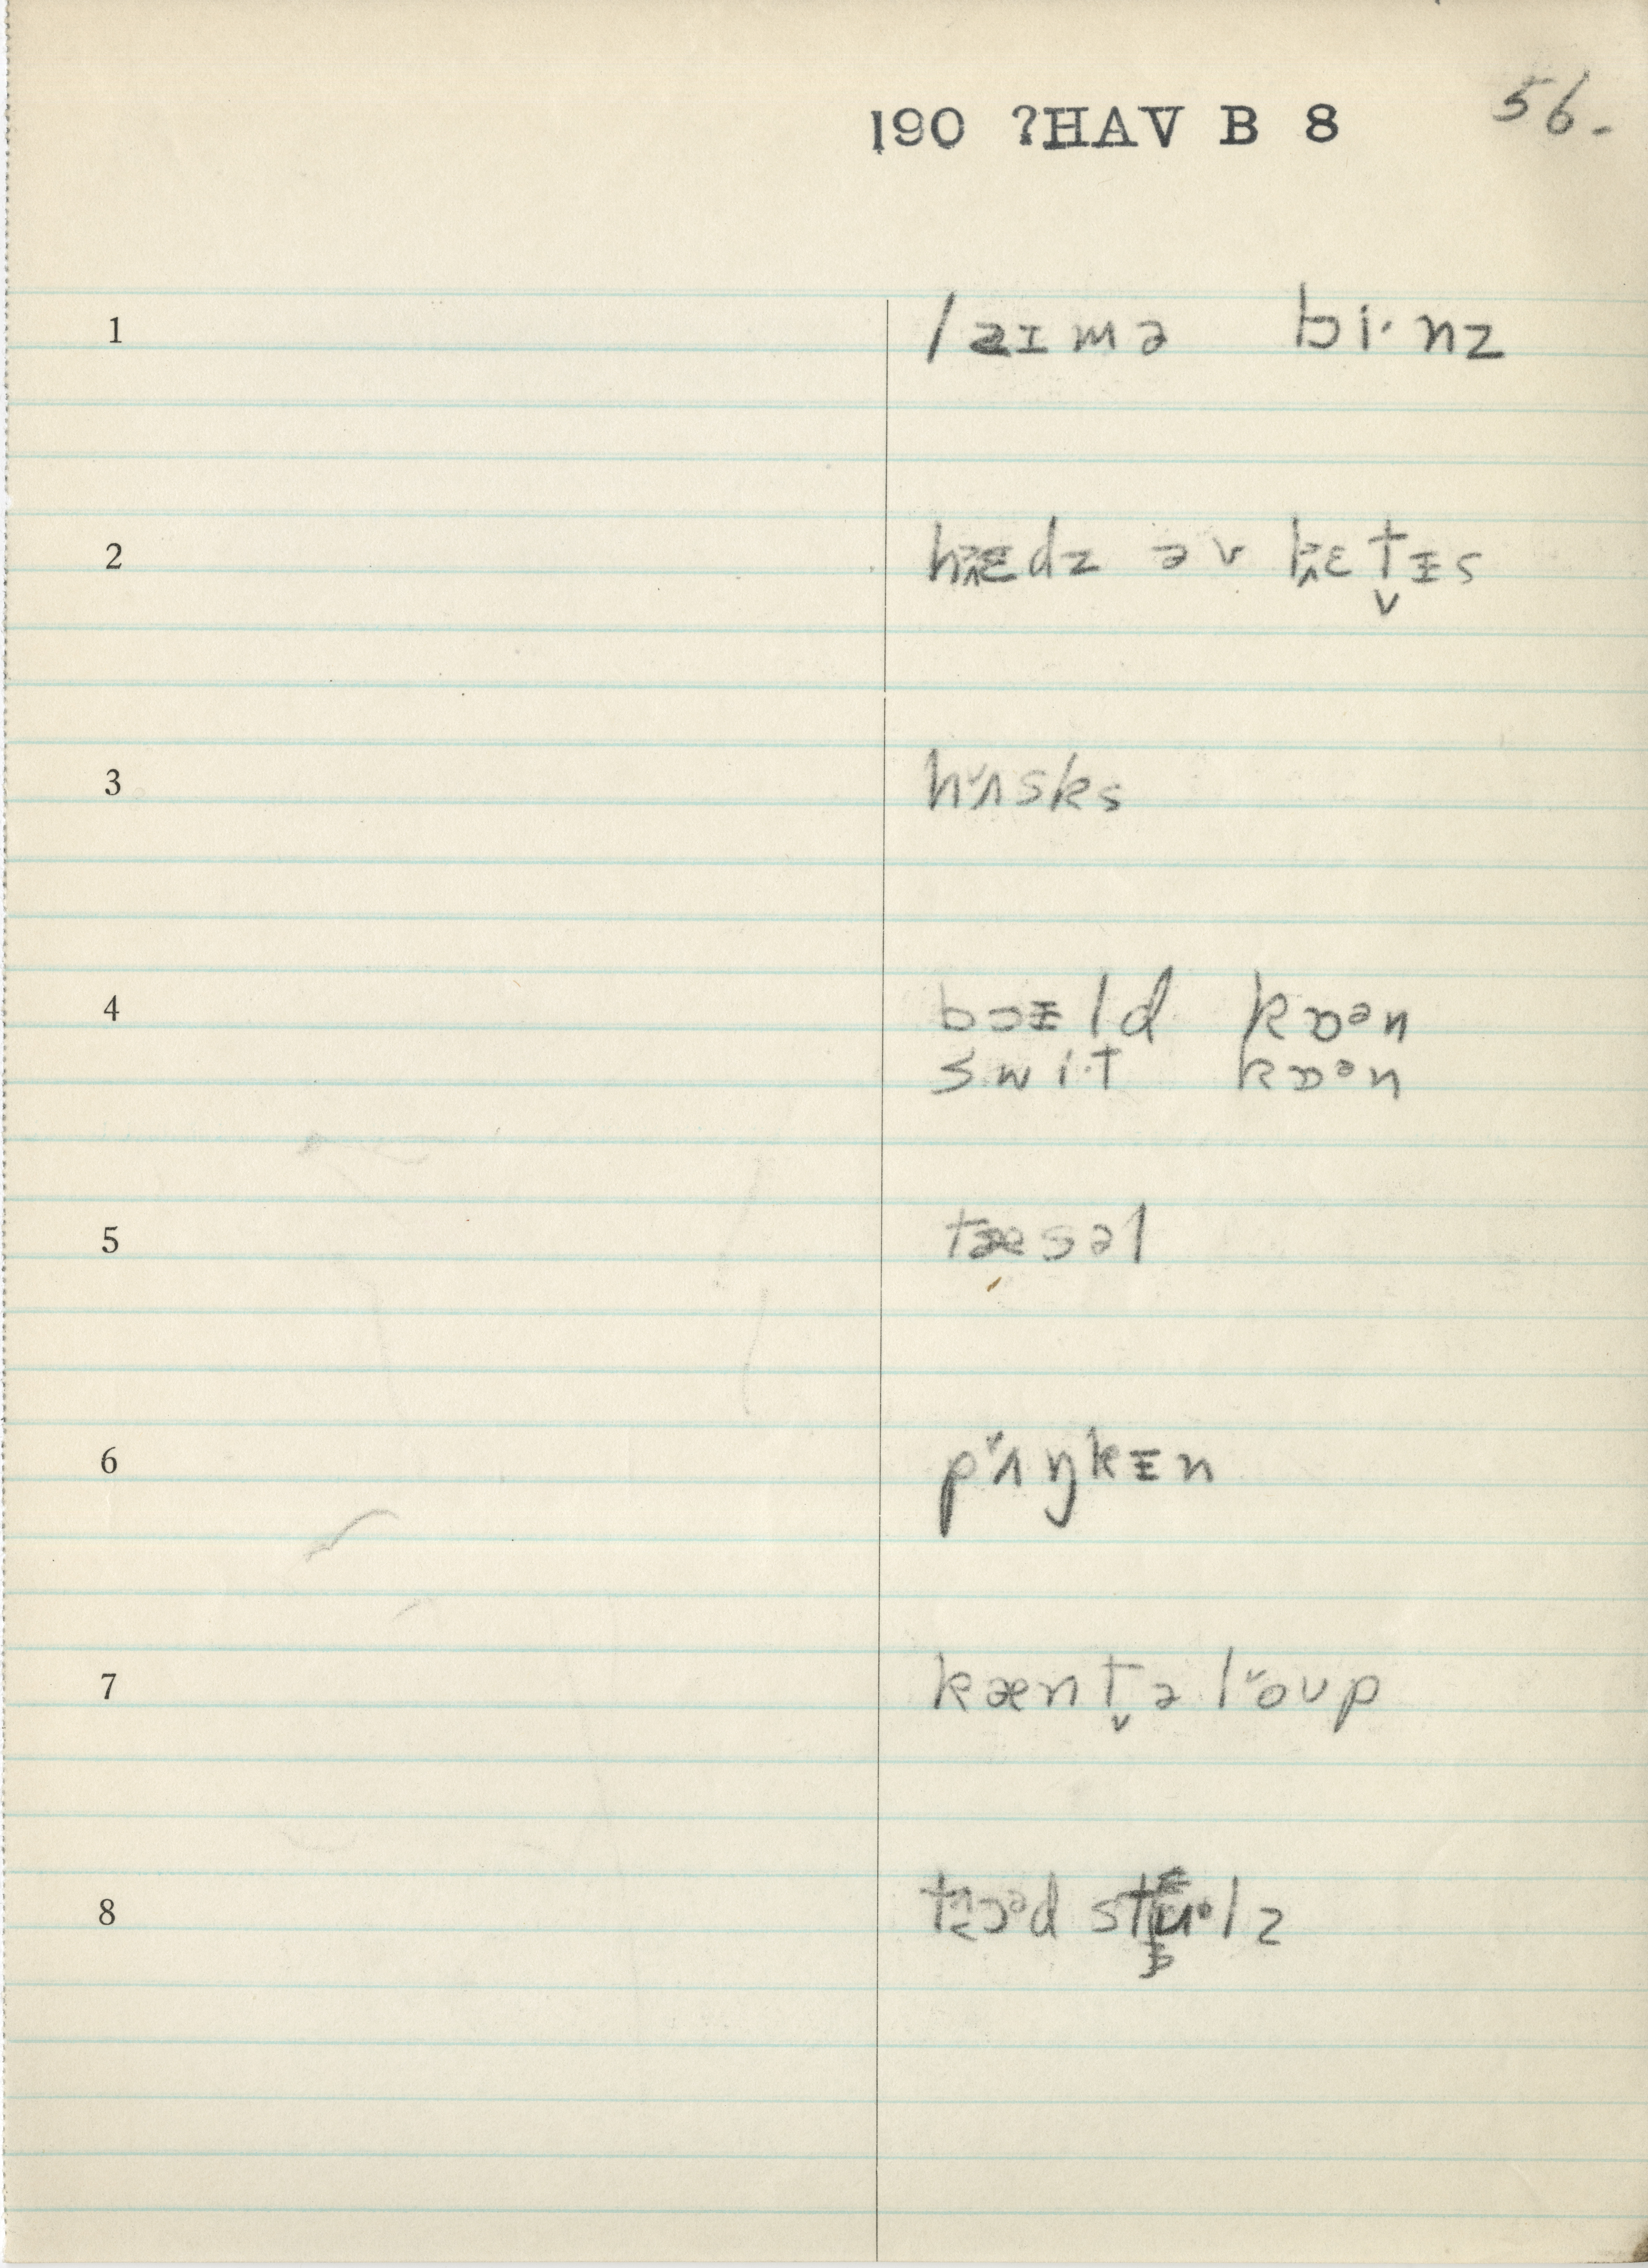 190 ?HAV B 8 56.
1 laɪmə bi·nz
2 hɛdz əv lɛt̬ᵻs
3 hʌ̆sks
4 bɔᵻld kɒᵊn
swi·t kɒᵊn
5 tæsəl
6 pʌ̆ŋkᵻn
7 kænt̬əlŏʊp
8